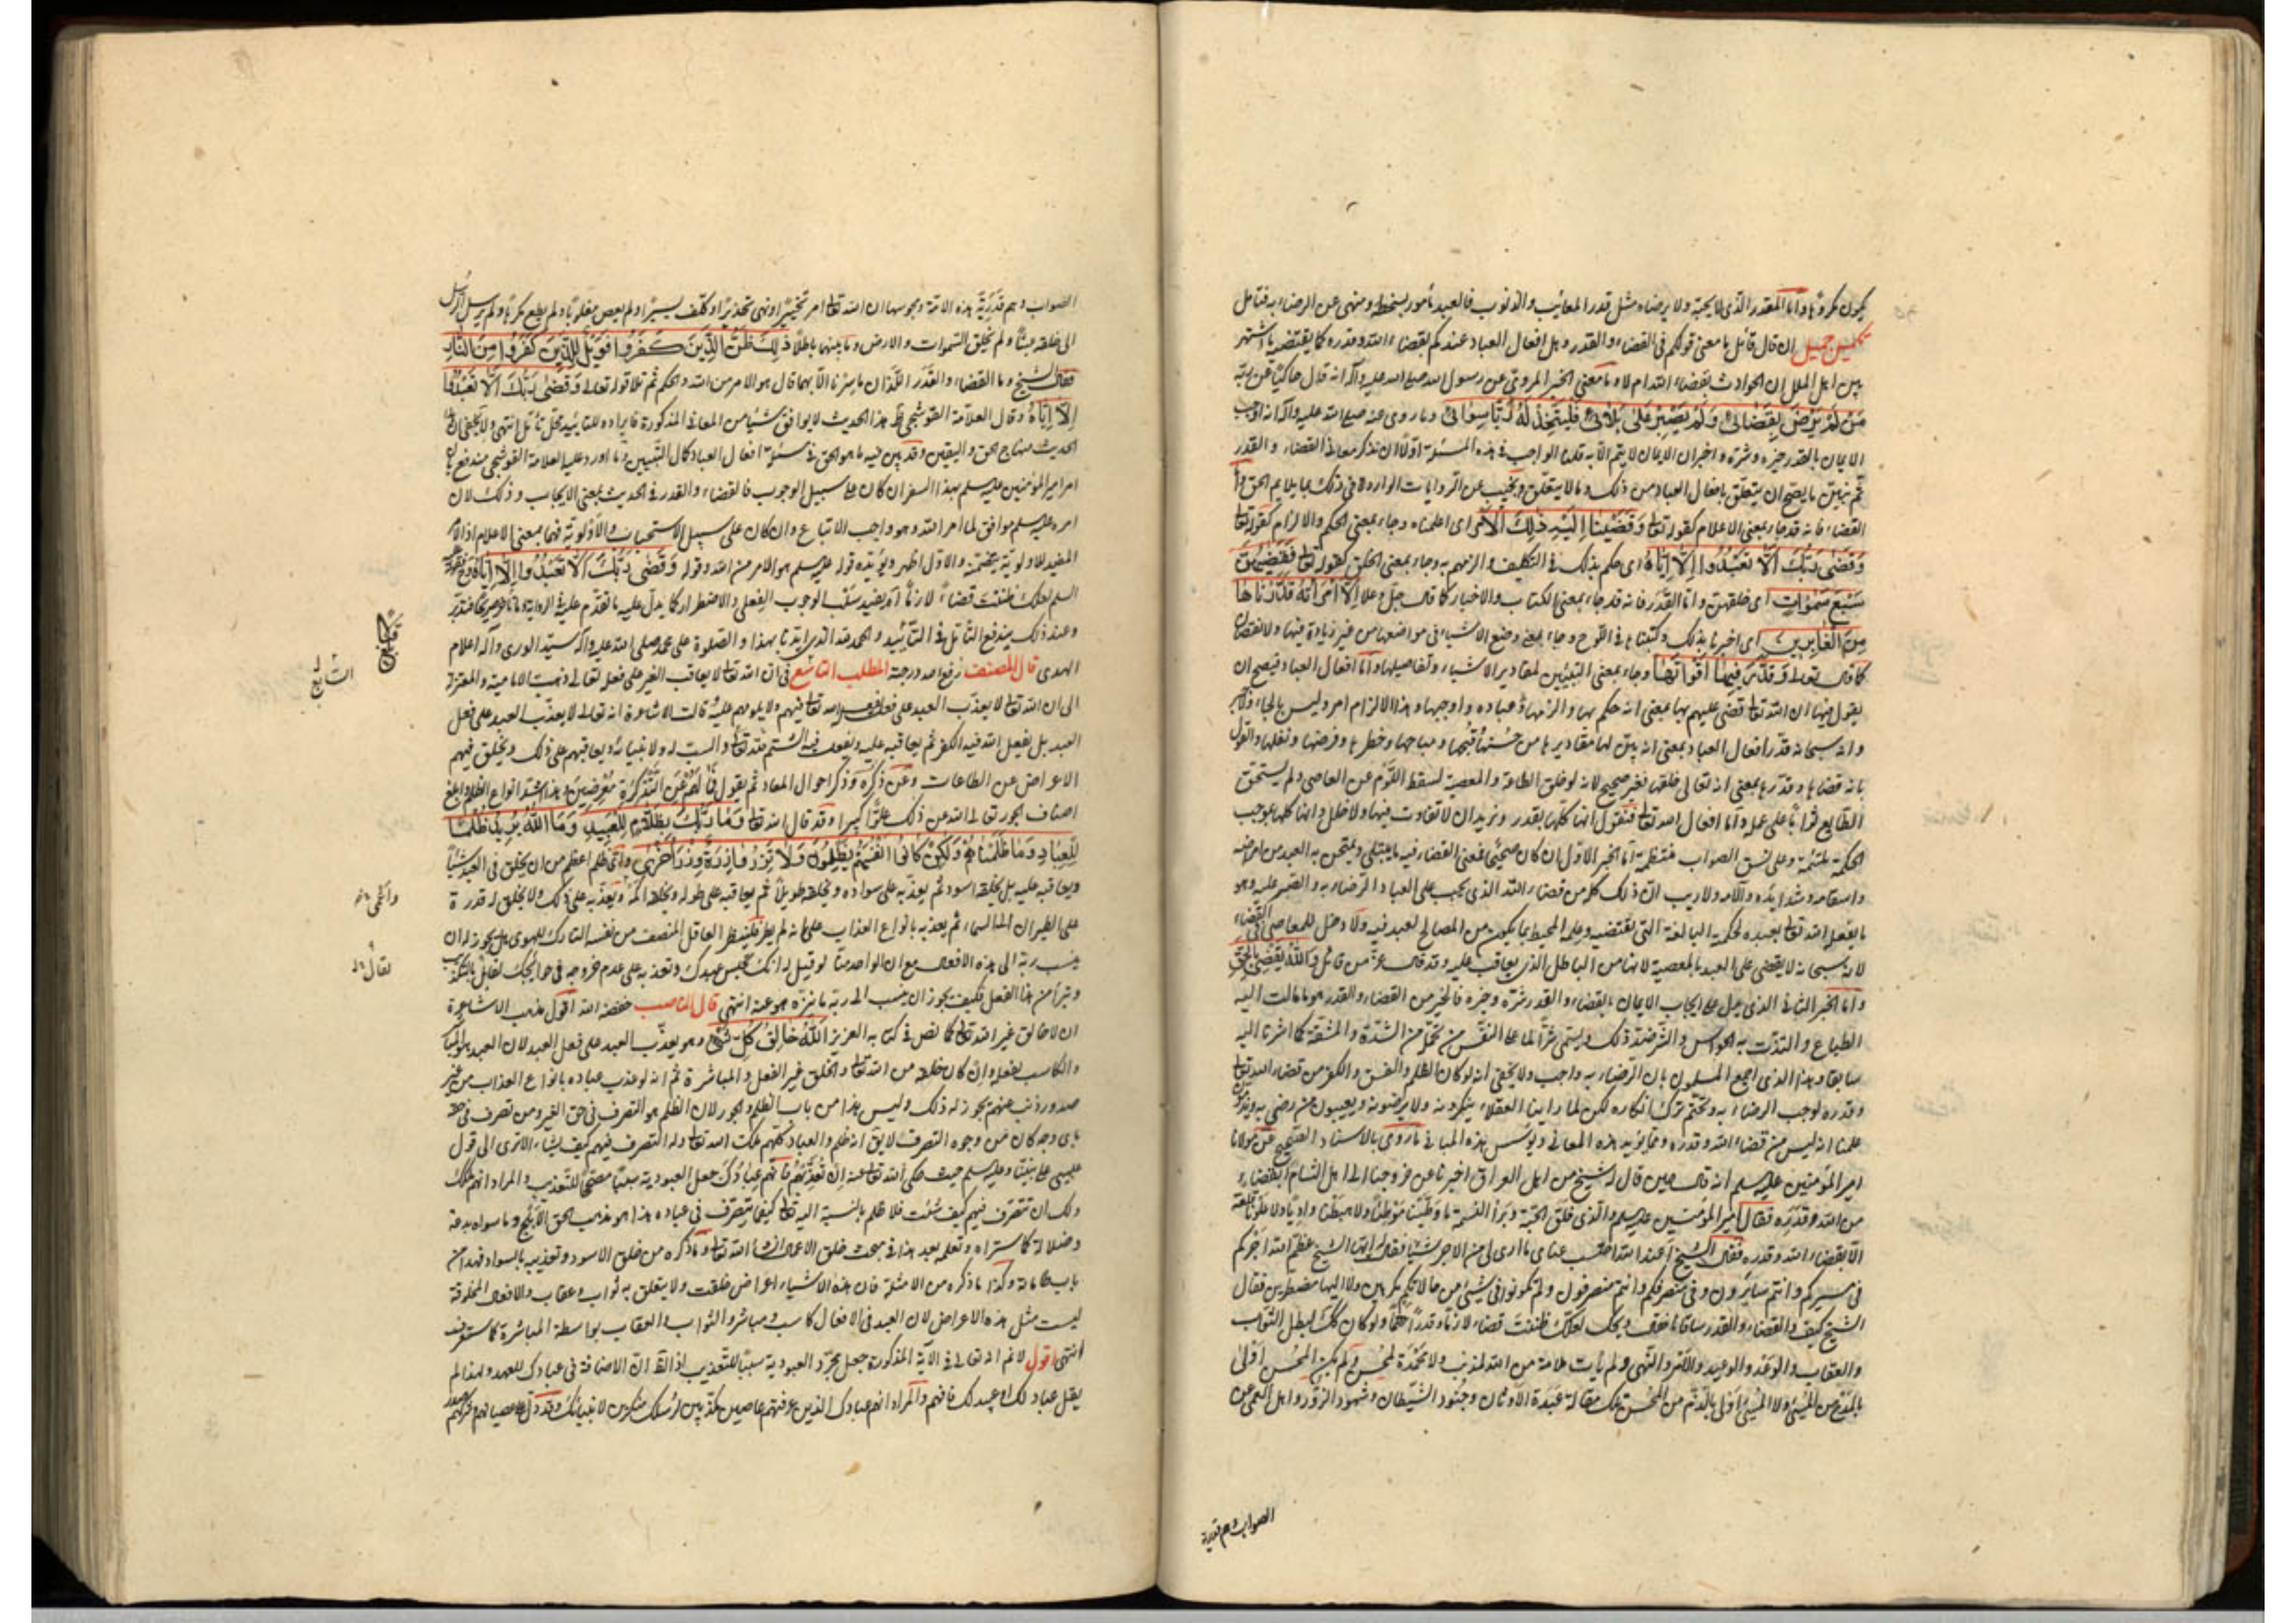 يكون مكروها واما المقدر الذي لا يحبه ولا يرضاه مثل قدر المعائب والذنوب فالعبد مأمور بسخطه ومنهي عن الرضاء به فتامل
تكميل جميل ان قال قائل ما معنى قولكم في القضاء والقدر وهل افعال العباد عندكم بقضاء الله وقدره كما يقتضيه ما اشتهر
بين اهل الملل ان الحوادث بقضاء الله ام لا وما معنى الخبر المروي عن رسول الله صلى الله عليه وآله انه قال حاكيا عن ربه
من لم يرض بقضائي ولم يصبر على بلائي فليتخذ له ربا سوائي وما روي عنه صلى الله عليه وآله انه اوجب
الايمان بالقدر خيره وشره واخبر ان الايمان لا يتم الا به قلنا الواجب في هذه المسئلة اولا ان نذكر معاني القضاء والقدر
ثم نبين ما يصح ان يتعلق بافعال العباد من ذلك وما لا يتعلق ونجيب عن الروايات الواردة في ذلك بما يلايم الحق واما
القضاء فانه قد جاء بمعنى الاعلام كقوله تعالى وقضينا اليه ذلك الامر اي اعلمناه وجاء بمعنى الحكم والالزام كقوله تعالى
وقضى ربك الا تعبدوا الا اياه اي حكم بذلك في التكليف والزمهم به وجاء بمعنى الخلق كقوله تعالى فقضيهن
سبع سموات اي خلقهن واما القدر فانه قد جاء بمعنى الكتاب والاخبار كما قال جل وعلا الا امراته قدرناها
من الغابرين اي اخبرنا بذلك وكتبناها في اللوح وجاء بمعنى وضع الاشياء في مواضعها من غير زيادة فيها ولا نقصان
كما قال تعالى وقدر فيها اقواتها وجاء بمعنى التبيين لمقادير الاشياء وتفاصيلها واما افعال العباد فيصح ان
يقول فيها ان الله تعالى قضى عليهم بها بمعنى انه حكم بها والزمها عباده واوجبها وهذا الالزام امر وليس بالجاء ولا جبر
وانه سبحانه قدر افعال العباد بمعنى انه بين لها مقاديرها من حسنها وقبحها ومباحها وحظرها وفرضها ونفلها والقول
بانه قضاها وقدرها بمعنى انه تعالى خلقها فغير صحيح لانه لو خلق الطاعة والمعصية لسقط اللوم عن العاصي ولم يستحق
الطايع ثوابا على عمله واما افعال الله تعالى فنقول انها كلها بقدر ونريد ان لا تفاوت فيها ولا خلل وانها كلها بموجب
الحكمة ملتئمة وعلى نسق الصواب منتظمة اما الخبر الاول ان كان صحيحا فمعنى القضاء فيه ما يبتلي ويمتحن به العبد من امراضه
واسقامه وشدائده وآلامه ولا ريب ان ذلك كله من قضاء الله الذي يجب على العباد الرضاء به والصبر عليه وهو
ما يفعل الله تعالى بعبده لحكمته البالغة التي تقتضيه وعلمه المحيط بما يكون من المصالح لعبده فيه ولا دخل للمعاصي في القضاء
لانه سبحانه لا يقضي على العبد بالمعصية لانها من الباطل الذي يعاقب عليه وقد قال عز من قائل والله يقضي بالحق
واما الخبر الثاني الذي يدل على ايجاب الايمان بالقضاء والقدر شره وخيره فالخير من القضاء والقدر هو ما مالت اليه
الطباع والتذت به الحواس والشر ضد ذلك ويسمى شرا لما على النفس من تحمل من الشدة والمشقة كما اشرنا اليه
سابقا وهذا الذي اجمع المسلمون بان الرضاء به واجب ولا يخفى انه لو كان الظلم والفسق والكفر من قضاء الله تعالى
وقدره لوجب الرضاء به وتحتم ترك انكاره لكن لما راينا العقلاء ينكرونه ولا يرضونه ويعيبون من رضي به
علمنا انه ليس من قضاء الله وقدره ومما يؤيد هذه المعاني ويؤسس هذه المباني ما روي بالاسناد الصحيح عن مولانا
امير المؤمنين عليه السلم انه قال حين قال له شيخ من اهل العراق اخبرنا عن خروجنا الى اهل الشام أبقضاء
من الله وقدره فقال امير المؤمنين عليه السلم والذي فلق الحبة وبرا النسمة ما وطئنا موطئا ولا هبطنا واديا ولا علونا تلعة
الا بقضاء الله وقدره فقال الشيخ أعند الله احتسب عناي ما ارى لي من الاجر شيئا فقال له ايها الشيخ عظم الله اجركم
في مسيركم وانتم سايرون وفي منصرفكم وانتم منصرفون ولم تكونوا في شيء من حالاتكم مكرهين ولا اليها مضطرين فقال
الشيخ كيف والقضاء والقدر ساقانا فقال ويحك لعلك ظننت قضاء لازما وقدرا حتما ولو كان كذلك لبطل الثواب
والعقاب والوعد والوعيد والامر والنهي ولم يأت ملامة من الله لمذنب ولا محمدة لمحسن ولم يكن المحسن اولى
بالمدح من المسيء ولا المسيء اولى بالذم من المحسن تلك مقالة عبدة الاوثان وجنود الشيطان وشهود الزور واهل العمى عن
الصواب وهم قدرية
الصواب وهم قدرية هذه الامة ومجوسها ان الله تعالى امر تخييرا ونهى تحذيرا وكلف يسيرا ولم يعص مغلوبا ولم يطع مكرها ولم يرسل الرسل
الى خلقه عبثا ولم يخلق السموات والارض وما بينهما باطلا ذلك ظن الذين كفروا فويل للذين كفروا من النار
فقال الشيخ وما القضاء والقدر اللذان ما سرنا الا بهما قال هو الامر من الله والحكم ثم تلا قوله تعالى وقضى ربك الا تعبدوا
الا اياه وقال العلامة القوشجي هذا الحديث لا يوافق شيئا من المعاني المذكورة فايراده للتاييد محل تأمل انتهى ولا يخفى ان
الحديث منهاج الحق واليقين وقد بين فيه ما هو الحق في مسئلة افعال العباد كمال التبيين وما اورد عليه العلامة القوشجي مندفع بان
امر امير المؤمنين عليه السلم بهذا السفر ان كان على سبيل الوجوب فالقضاء والقدر في الحديث بمعنى الايجاب وذلك لان
امره عليه السلم موافق لما امر الله وهو واجب الاتباع وان كان على سبيل الاستحباب والاولوية فهما بمعنى الاعلام اذ الامر
المفيد للاولوية يتضمنه والاول اظهر ويؤيده قوله عليه السلم هو الامر من الله وقوله وقضى ربك الا تعبدوا الا اياه
السلم لعلك ظننت قضاء لازما آه يفيد سلب الوجوب الفعلي والاضطرار كما يدل عليه ما تقدم عليه في الرواية وما تاخر صريحا فتدبر
وعند ذلك يندفع التأمل في التأييد والحمد لله الذي ايدنا بهذا والصلوة على محمد صلى الله عليه وآله سيد الورى وآله اعلام
الهدى قال المصنف رفع الله درجته المطلب التاسع في ان الله تعالى لا يعاقب الغير على فعله تعالى ذهبت الامامية والمعتزلة
الى ان الله تعالى لا يعذب العبد على فعل يفعله الله تعالى فيهم ولا يلومهم عليه قالت الاشاعرة انه تعالى لا يعذب العبد على فعل
العبد بل يفعل الله فيه الكفر ثم يعاقبه عليه ويفعل فيه الشتم لله تعالى والسب له ولانبيائه ويعاقبهم على ذلك ويخلق فيهم
الاعراض عن الطاعات وعن ذكره وذكر احوال المعاد ثم يقول فما لهم عن التذكرة معرضين وهذا اشد انواع الظلم وابلغ
اصناف الجور تعالى الله عن ذلك علوا كبيرا وقد قال الله تعالى وما ربك بظلام للعبيد وما الله يريد ظلما
للعباد وما ظلمناهم ولكن كانوا انفسهم يظلمون ولا تزر وازرة وزر اخرى واي ظلم اعظم من ان يخلق في العبد شيئا
ويعاقبه عليه بل يخلقه اسود ثم يعذبه على سواده ويخلقه طويلا ثم يعاقبه على طوله ويخلقه اكمه ويعذبه على ذلك ولا يخلق له قدرة
على الطيران الى السماء ثم يعذبه بانواع العذاب على انه لم يطر فلينظر العاقل المنصف من نفسه التارك للهوى هل يجوز له ان
ينسب ربه الى هذه الافعال مع ان الواحد منا لو قيل له انك تحبس عبدك وتعذبه على عدم خروجه في حوايجك لقابل بالتكذيب
وتبرأ من هذا الفعل فكيف يجوز ان ينسب الى ربه ما يتنزه هو عنه انتهى قال الناصب خفضه الله اقول مذهب الاشاعرة
ان لا خالق غير الله تعالى كما نص في كتابه العزيز الله خالق كل شيء وهو يعذب العبد على فعل العبد لان العبد هو المباشر
والكاسب لفعله وان كان خلقه من الله تعالى والخلق غير الفعل والمباشرة ثم انه لو عذب عباده بانواع العذاب من غير
صدور ذنب عنهم يجوز له ذلك وليس هذا من باب الظلم والجور لان الظلم هو التصرف في حق الغير ومن تصرف في حقه
باي وجه كان من وجوه التصرف لا يق انه ظلم والعباد كلهم ملك الله تعالى وله التصرف فيهم كيف يشاء الا ترى الى قول
عيسى على نبينا وعليه السلم حيث حكى الله تعالى عنه ان تعذبهم فانهم عبادك جعل العبودية سببا مصححا للتعذيب والمراد انهم ملكك
ولك ان تتصرف فيهم كيف شئت فلا ظلم بالنسبة اليه تعالى كيفما يتصرف في عباده هذا هو مذهب الحق الابلج وما سواه بدعة
وضلالة كما ستراه وتعلمه بعد هذا في مبحث خلق الاعمال ان شاء الله تعالى وما ذكره من خلق الاسود وتعذيبه بالسواد فهذا من
باب طامة وكذا ما ذكره من الامثلة فان هذه الاشياء اعراض خلقت ولا يتعلق به ثواب وعقاب والافعال المخلوقة
ليست مثل هذه الاعراض لان العبد في الافعال كاسب ومباشر والثواب والعقاب بواسطة المباشرة كما ستعرف
انتهى اقول لا نم انه تعالى في الآية المذكورة جعل مجرد العبودية سببا للتعذيب اذ الظ ان الاضافة في عبادك للعهد ولهذا لم
يقل عباد لك او عبيد لك فافهم والمراد انهم عبادك الذين عرفتهم عاصين مكذبين لرسلك منكرين لانبيائك وقد دل على عصيانهم
التاسع